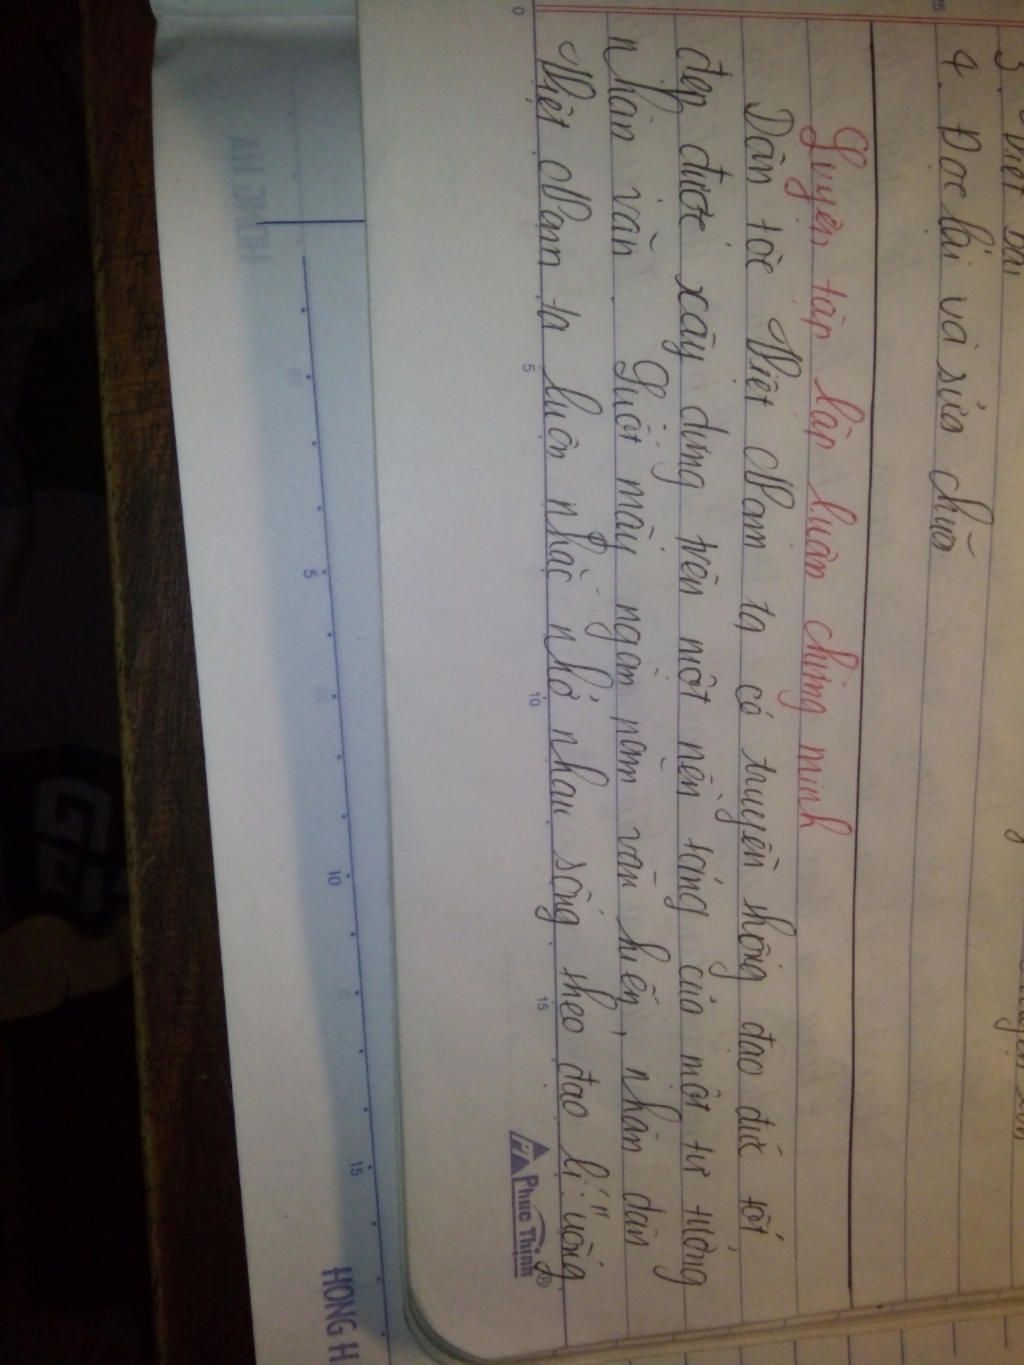 25
3. Viết bài
4. Đọc lại và sửa chữa
Luyện tập lập luận chứng minh
Dân tộc Việt Nam ta có truyền thống đạo đức tốt
đẹp được xây dựng trên một nền tảng của một tư tưởng
nhân văn. Suốt mấy ngàn năm văn hiến, nhân dân
Việt Nam ta luôn nhắc nhở nhau sống theo đạo lí: "uống
0 5 10 15
Phuc Thinh®
5 10 15
HONG H